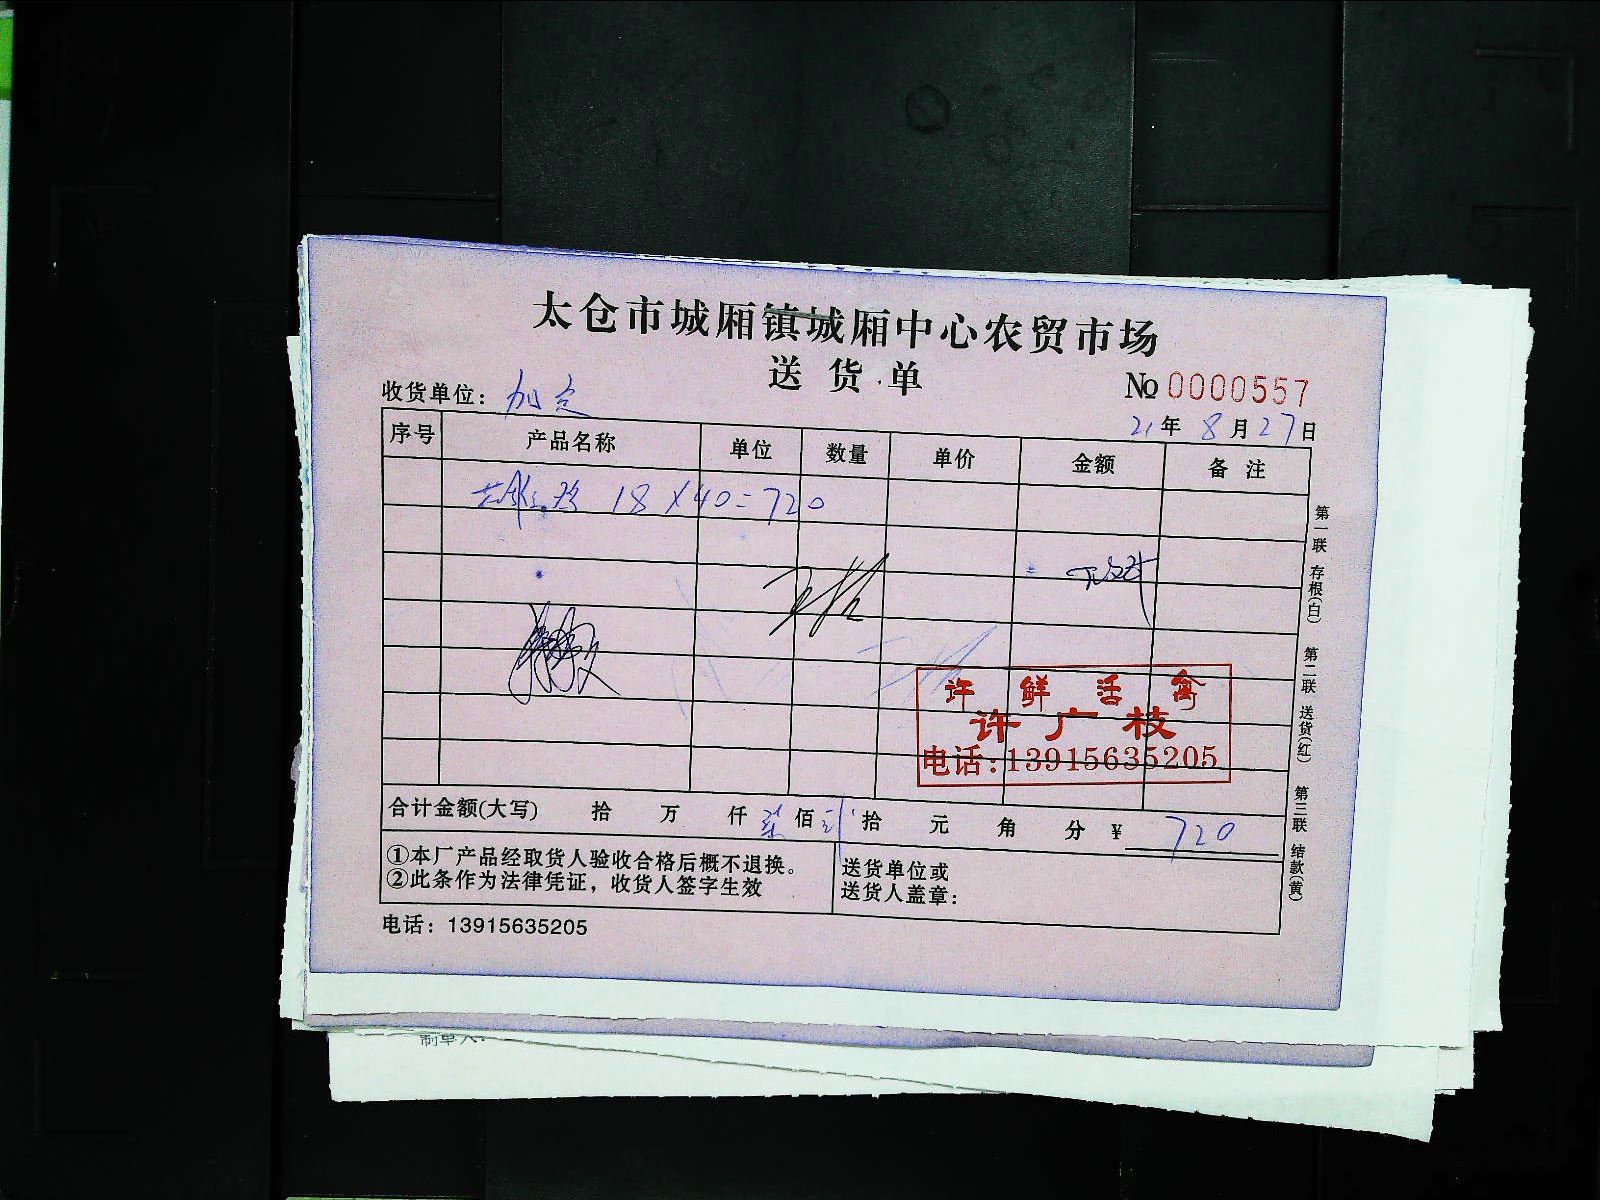 太仓市城厢镇城厢中心农贸市场
送货单
No 0000557
收货单位：加定
21年8月27日
序号 产品名称 单位 数量 单价 金额 备注
18×40=720
许鲜活禽
许广枝
电话：13915635205
合计金额(大写) 拾 万 仟 柒佰 贰拾 元 角 分 ¥ 720
①本厂产品经取货人验收合格后概不退换。
②此条作为法律凭证，收货人签字生效
送货单位或
送货人盖章：
电话：13915635205
第一联 存根(白) 第二联 送货(红) 第三联 结款(黄)
制单人：